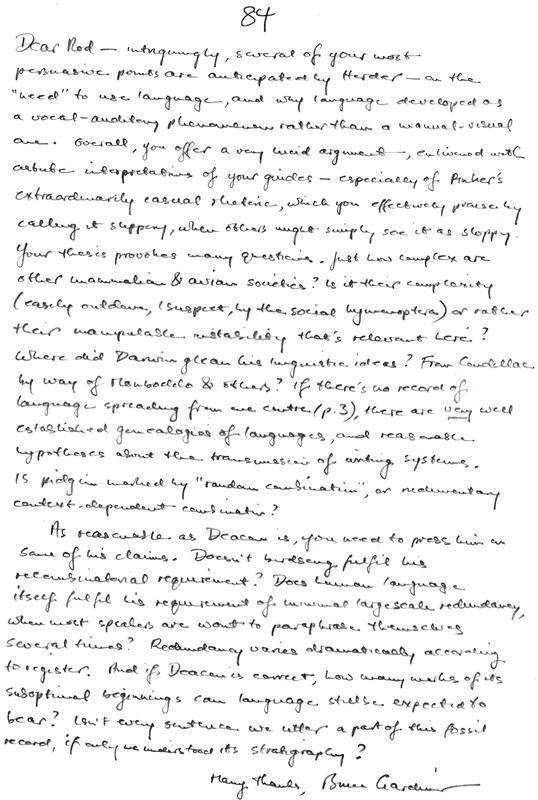 84
Dear Rod — intriguingly, several of your most
persuasive points are anticipated by Herder — on the
"need" to use language, and why language developed as
a vocal-auditory phenomenon rather than a manual-visual
one. Overall, you offer a very lucid argument, enlivened with
astute interpretations of your guides — especially of Pinker's
extraordinarily casual rhetoric, which you effectively praise by
calling it slippery, when others might simply see it as sloppy.
Your thesis provokes many questions. Just how complex are
other mammalian & avian societies? Is it their complexity
(easily outdone, I suspect, by the social hymenoptera) or rather
their manipulable instability that's relevant here?
Where did Darwin glean his linguistic ideas? From Condillac
by way of Monboddo & others? If there's no record of
language spreading from one centre (p.3), there are very well
established genealogies of languages, and reasonable
hypotheses about the transmission of writing systems.
Is pidgin marked by "random combination", or rudimentary
context-dependent combination?
As reasonable as Deacon is, you need to press him on
some of his claims. Doesn't birdsong fulfil his
recombinatorial requirement? Does human language
itself fulfil his requirement of minimal largescale redundancy,
when most speakers are wont to paraphrase themselves
several times? Redundancy varies dramatically according
to register. And if Deacon is correct, how many marks of its
suboptimal beginnings can language still be expected to
bear? Isn't every sentence we utter a part of this fossil
record, if only we understood its stratigraphy?
Many thanks, Bruce Gardiner